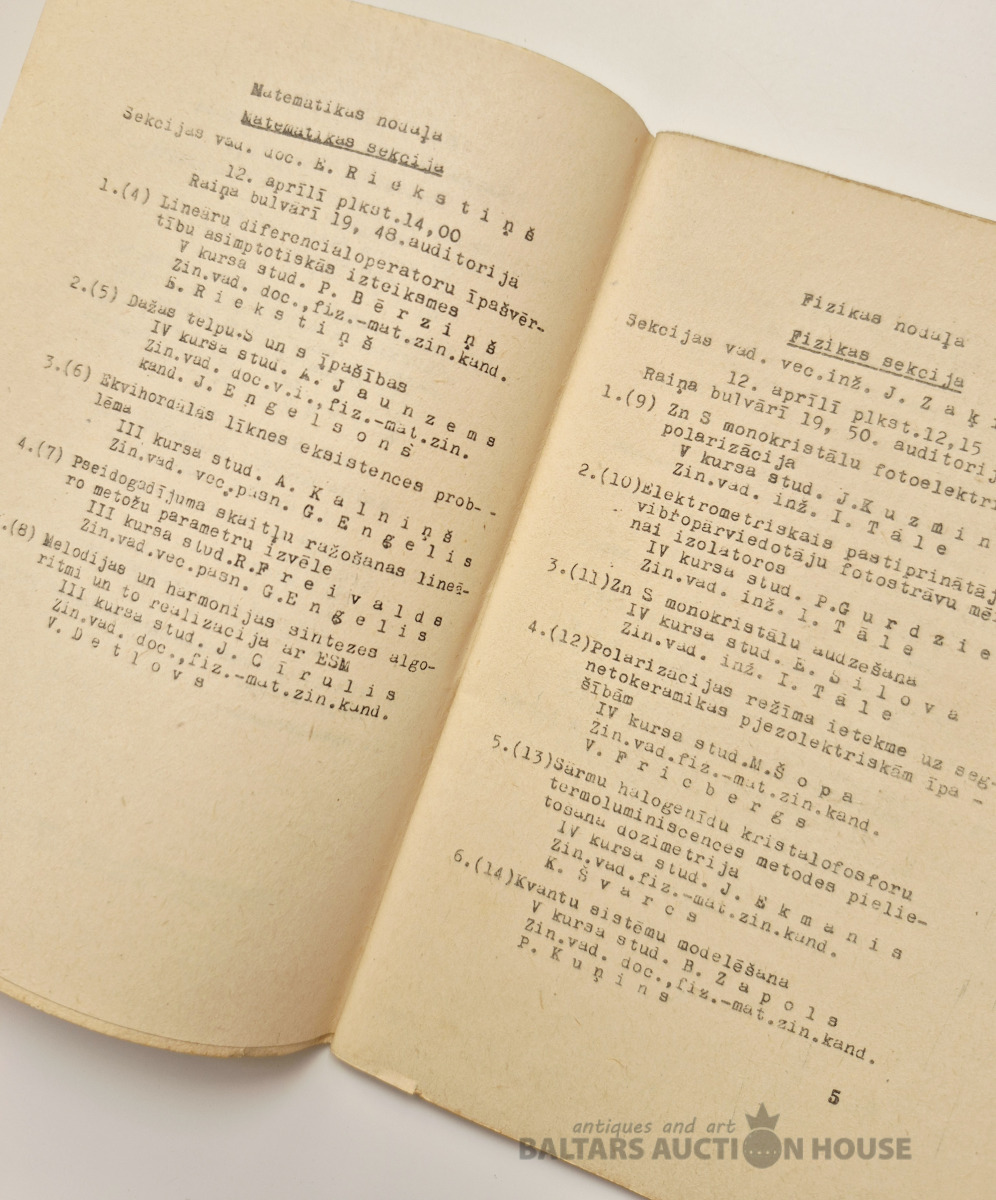 Matematikas nodaļa
Matematikas sekcija
Sekcijas vad. doc. E. R i e k s t i ņ š
12. aprīlī plkst.14,00
Raiņa bulvārī 19, 48.auditorija
1.(4) Lineāru diferenciāloperatoru īpašvēr-
tību asimptotiskās izteiksmes
V kursa stud. P. B ē r z i ņ š
Zin.vad. doc.,fiz.-mat.zin.kand.
E. R i e k s t i ņ š
2.(5) Dažas telpu.S un s īpašības
IV kursa stud. A. J a u n z e m s
Zin.vad. doc.v.i.,fiz.-mat.zin.
kand. J. E n g e l s o n s
3.(6) Ekvihordālās līknes eksistences prob-
lēma
III kursa stud. A. K a l n i ņ š
Zin.vad. vec.pasn. G. E n ģ e l i s
4.(7) Pseidogadījuma skaitļu ražošanas lineā-
ro metožu parametru izvēle
III kursa stud.R.F r e i v a l d s
Zin.vad.vec.pasn. G.E n ģ e l i s
.(8) Melodijas un harmonijas sintezes algo-
ritmi un to realizācija ar ESM
III kursa stud. J. C ī r u l i s
Zin.vad. doc.,fiz.-mat.zin.kand.
V. D e t l o v s
Fizikas nodaļa
Fizikas sekcija
Sekcijas vad. vec.inž. J. Z a ķ i
12. aprīlī plkst.12,15
Raiņa bulvārī 19, 50. auditorij
1.(9) Zn S monokristālu fotoelektri
polarizācija
V kursa stud. J.K u z m i n
Zin.vad. inž. I. T ā l e
2.(10)Elektrometriskais pastiprinātāj
vibropārviedotāju fotostrāvu mē
nai izolatoros
IV kursa stud. P.G u r d z i e
Zin.vad. inž. I. T ā l e
3.(11)Zn S monokristālu audzēšana
IV kursa stud. E. S i l o v a
Zin.vad. inž. I. T ā l e
4.(12)Polarizācijas režīma ietekme uz seg-
netokeramikas pjezolektriskām īpa -
šībām
IV kursa stud.M.Š o p a
Zin.vad.fiz.-mat.zin.kand.
V. F r i c b e r g s
5.(13)Sārmu halogenīdu kristalofosforu
termoluminiscences metodes pielie-
tošana dozimetrijā
IV kursa stud. J. E k m a n i s
Zin.vad.fiz.-mat.zin.kand.
K. Š v a r c s
6.(14)Kvantu sistēmu modelēšana
V kursa stud. B. Z a p o l s
Zin.vad. doc.,fiz.-mat.zin.kand.
P. K u ņ i n s
5
antiques and art
BALTARS AUCTION HOUSE